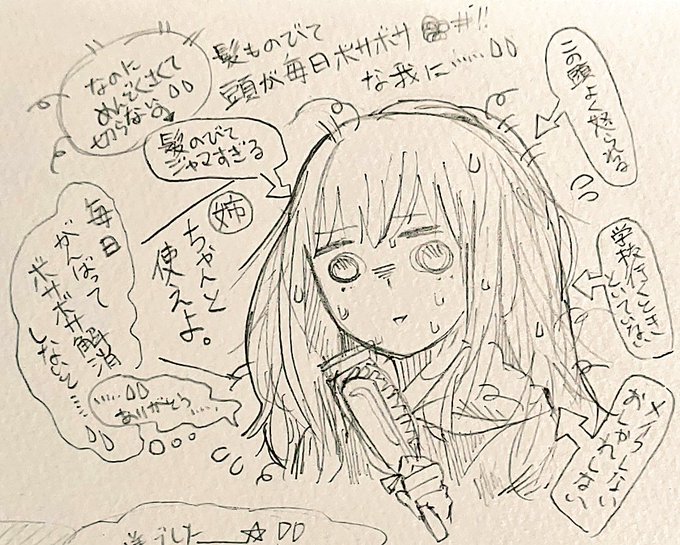 髪ものびて
頭が毎日ボサボサ
な我に……
なのに
めんどくさくて
切らないの
髪のびて
ジャマすぎる
この頭よく怒られる
姉
ちゃんと
使えよ。
毎日
がんばって
ボサボサ解消
しないと……
学校行くとき
といていない
……
ありがとう……
メイクしない
おしゃれしない